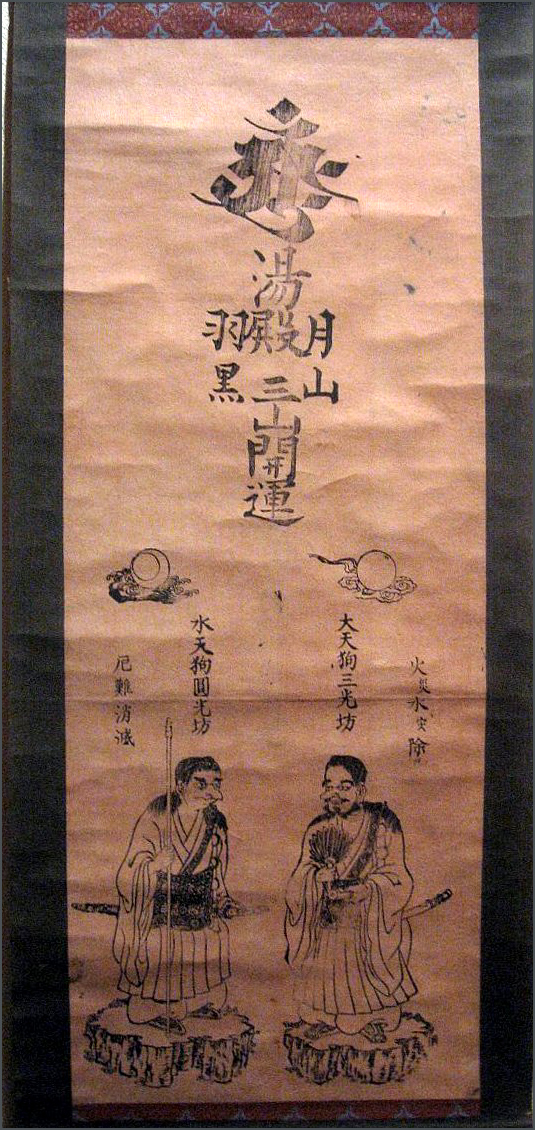 月山
湯殿三山開運
羽黒
火災水災除
大天狗三光坊
水天狗圓光坊
厄難消滅